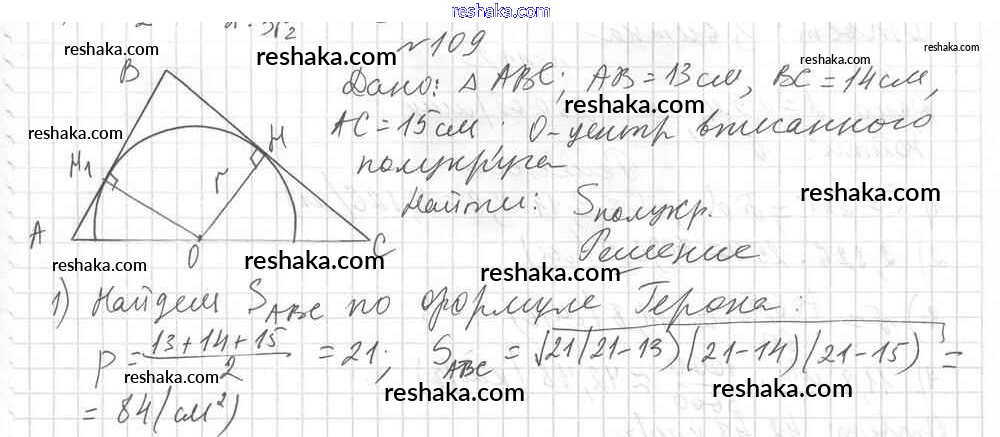 reshaka.com
№109
reshaka.com reshaka.com reshaka.com
B Дано: △ ABC; AB = 13 см, BC = 14 см,
reshaka.com
reshaka.com
H AC = 15 см. O - центр вписанного
H₁ полукруга
r Найти: Sполукр.
reshaka.com
A O C Решение
reshaka.com reshaka.com reshaka.com
1) Найдем S_ABC по формуле Герона:
p = (13 + 14 + 15)/2 = 21; S_ABC = √21(21-13)(21-14)(21-15) =
reshaka.com reshaka.com reshaka.com
= 84 (см²)